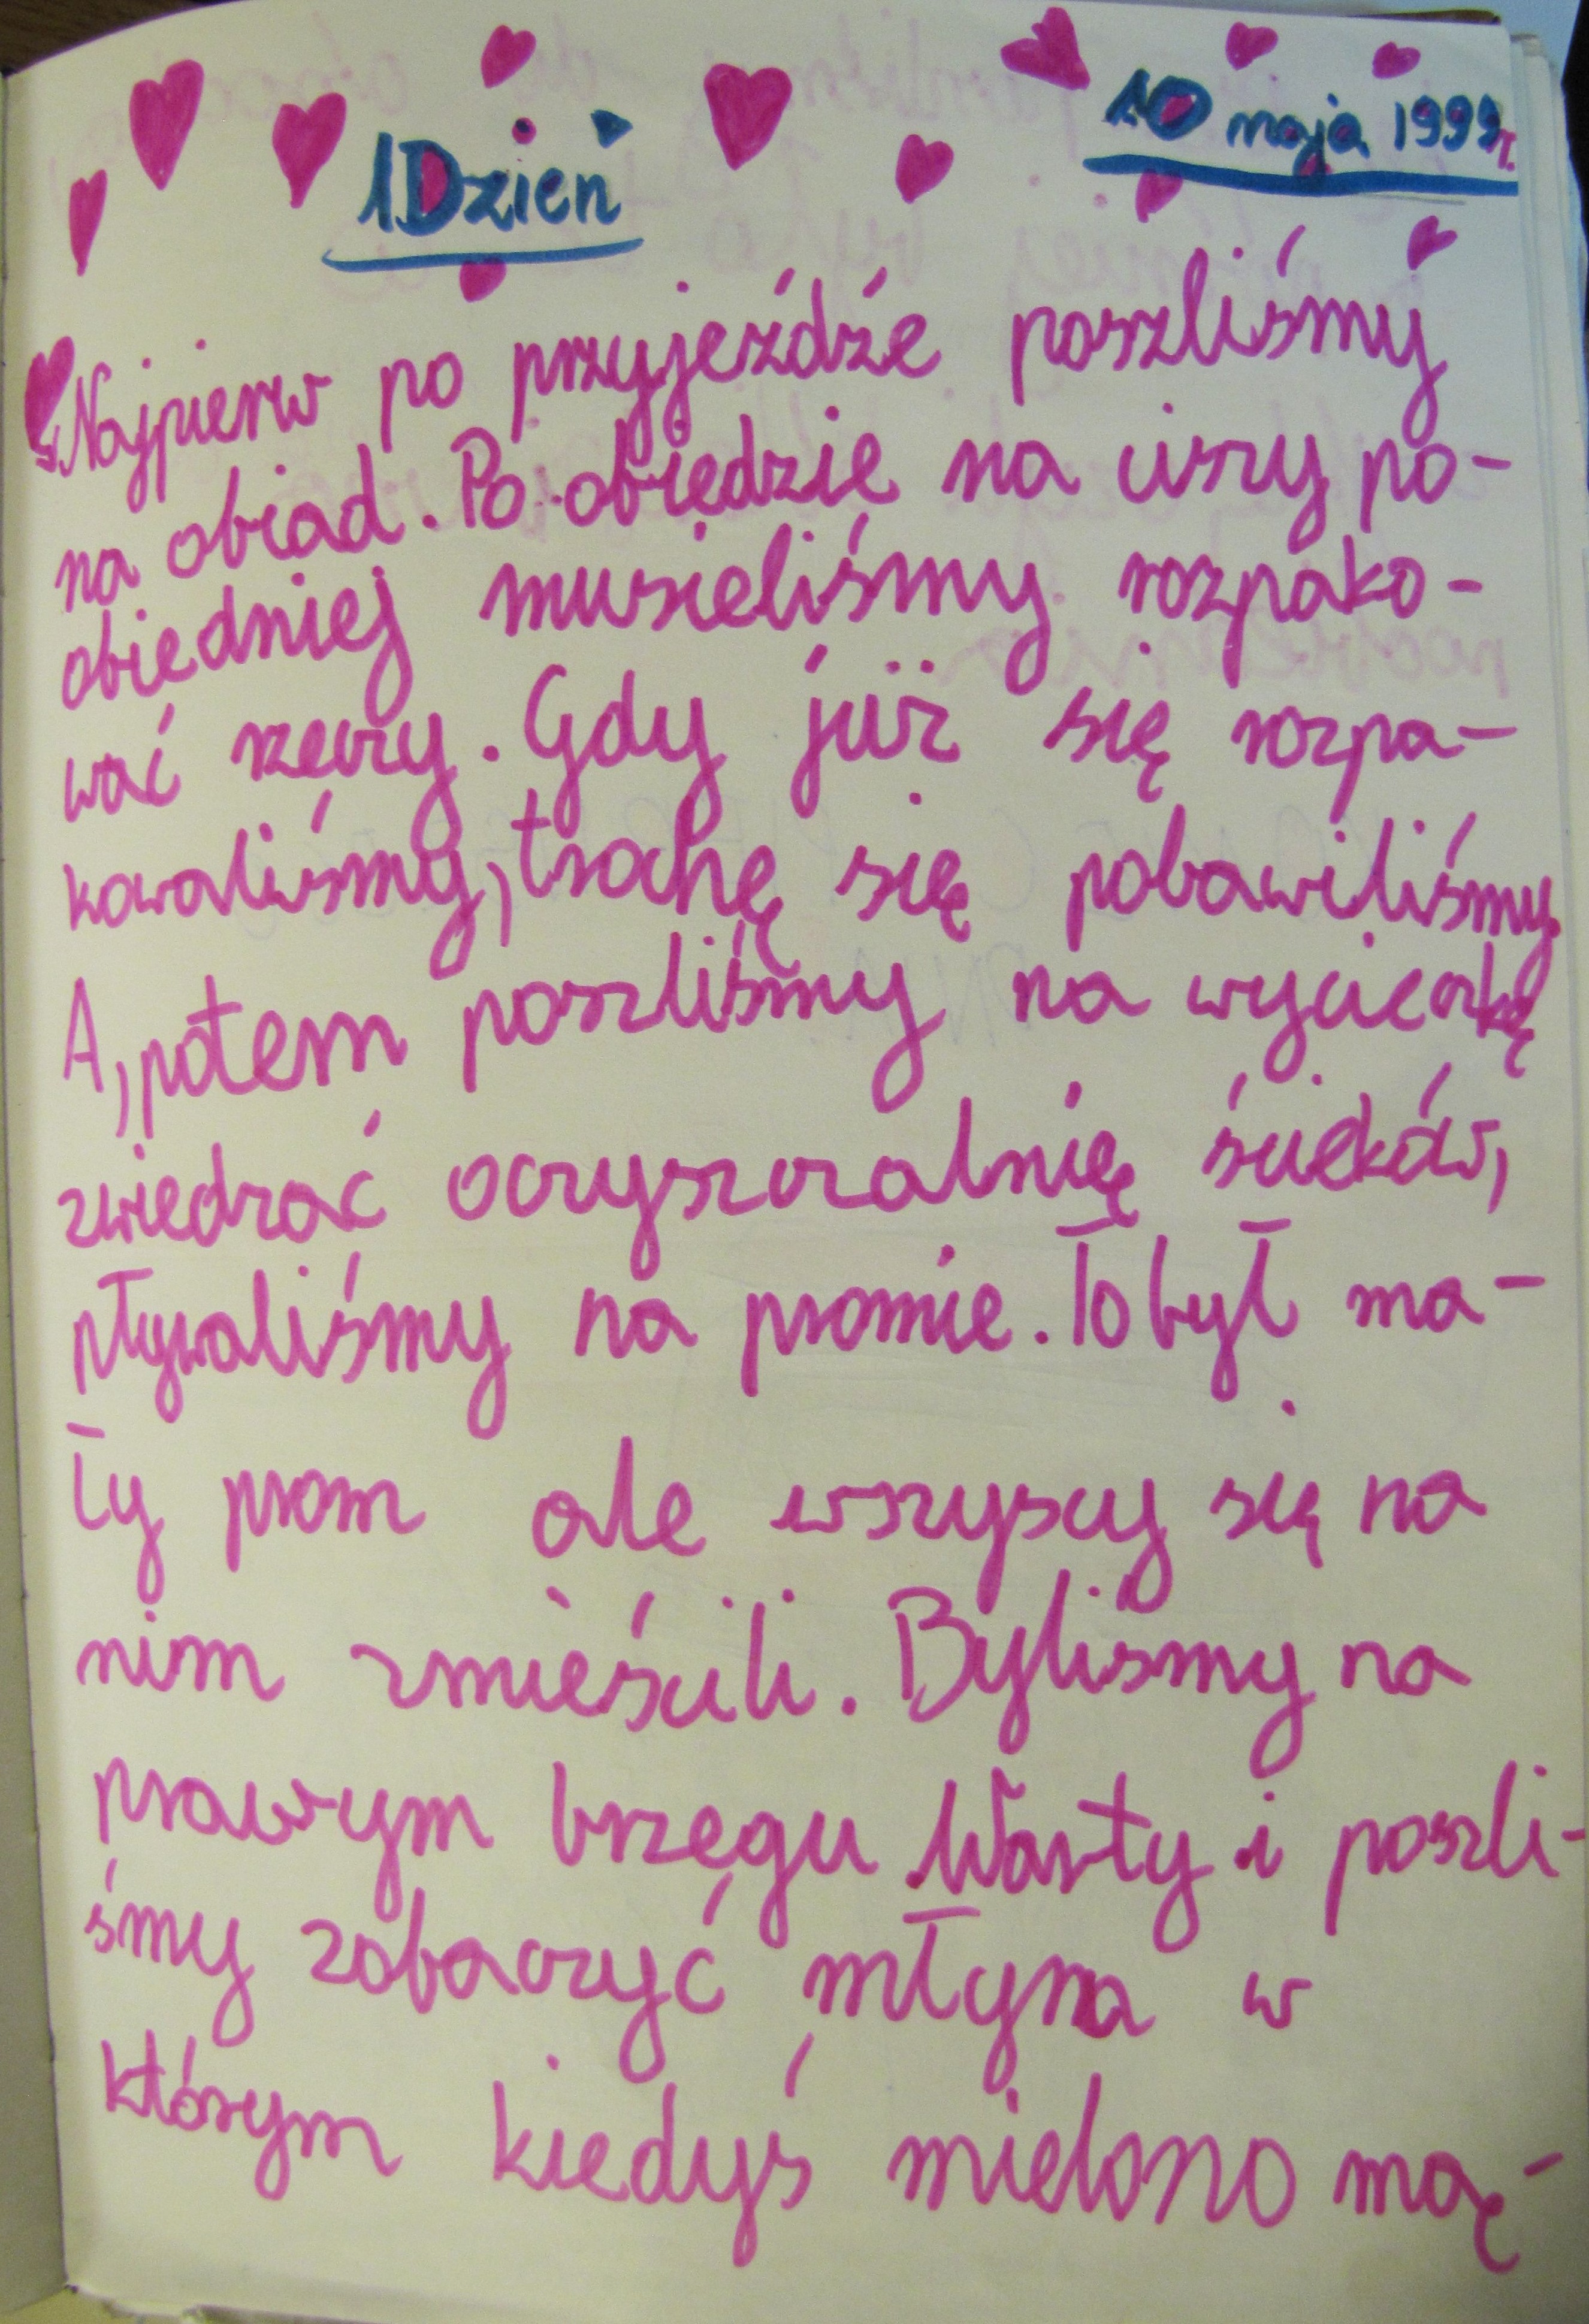 1 Dzień
10 maja 1999r.
Najpierw po przyjeźdźe poszliśmy
na obiad. Po obiedzie na ciszy po-
obiedniej musieliśmy rozpako-
wać rzeczy. Gdy już się rozpa-
kowaliśmy, trochę się pobawiliśmy.
A, potem poszliśmy na wycieczkę
zwiedzać oczyszczalnię ścieków,
pływaliśmy na promie. To był ma-
ły prom ale wszyscy się na
nim zmieścili. Byliśmy na
prawym brzegu Warty i poszli-
śmy zobaczyć młyna w
którym kiedyś mielono mą-